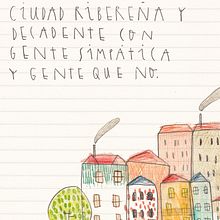 CIUDAD RIBEREÑA Y
DECADENTE CON
GENTE SIMPÁTICA
Y GENTE QUE NO.